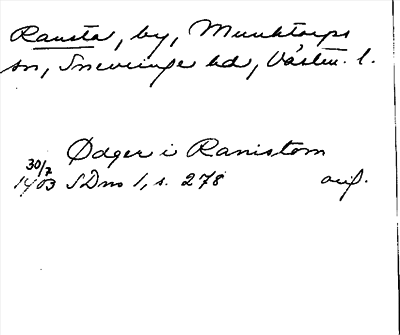 Ransta, by, Munktorps
sn, Snevringe hd, Västm. l.
Ødger i Ranistom
30/7
1403 SDns 1, s. 278 orig.